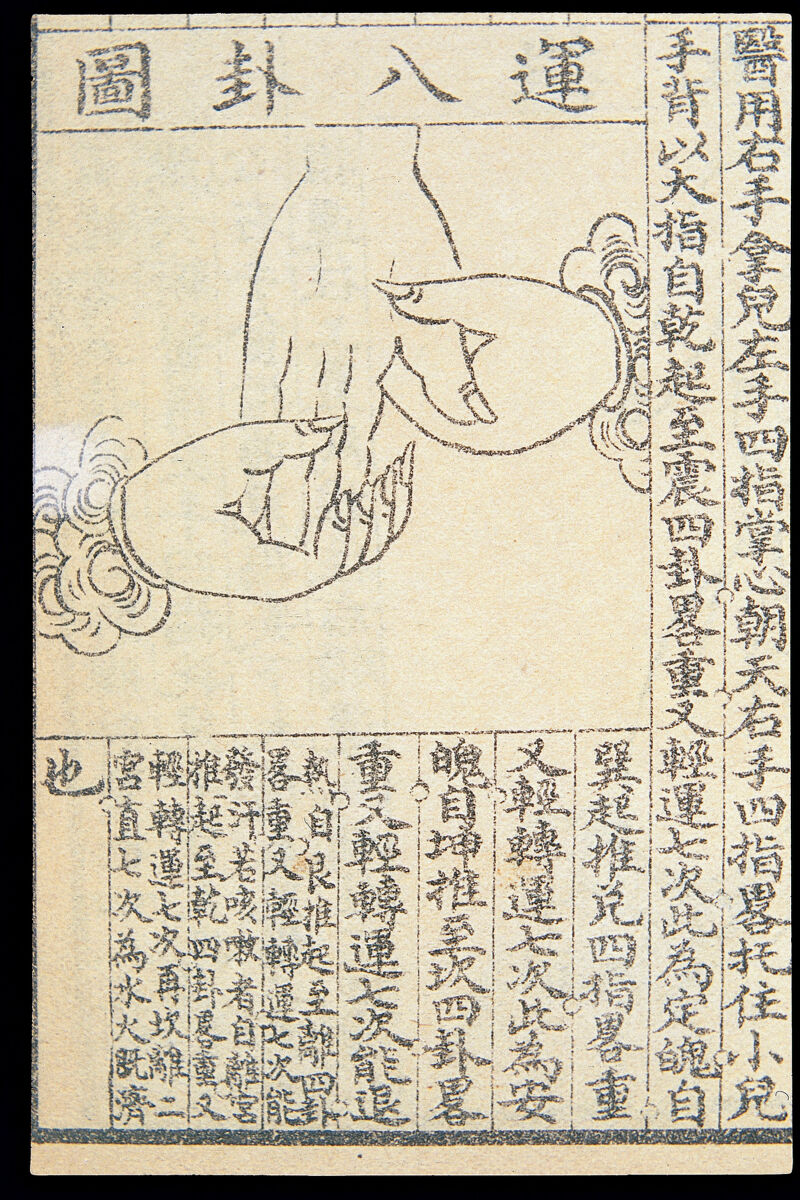 醫用右手拿兒左手四指掌心朝天右手四指畧托住小兒
手背以大指自乾起至震四卦畧重又輕運七次此為定魄自
運八卦圖
巽起推兌四指畧重
又輕轉運七次此為安
魄自坤推至坎四卦畧
重又輕轉運七次能退
熱自艮推起至離四卦
畧重又輕轉運七次能
發汗若咳嗽者自離宮
推起至乾四卦畧重又
輕轉運七次再坎離二
宮直七次為水火既濟
也